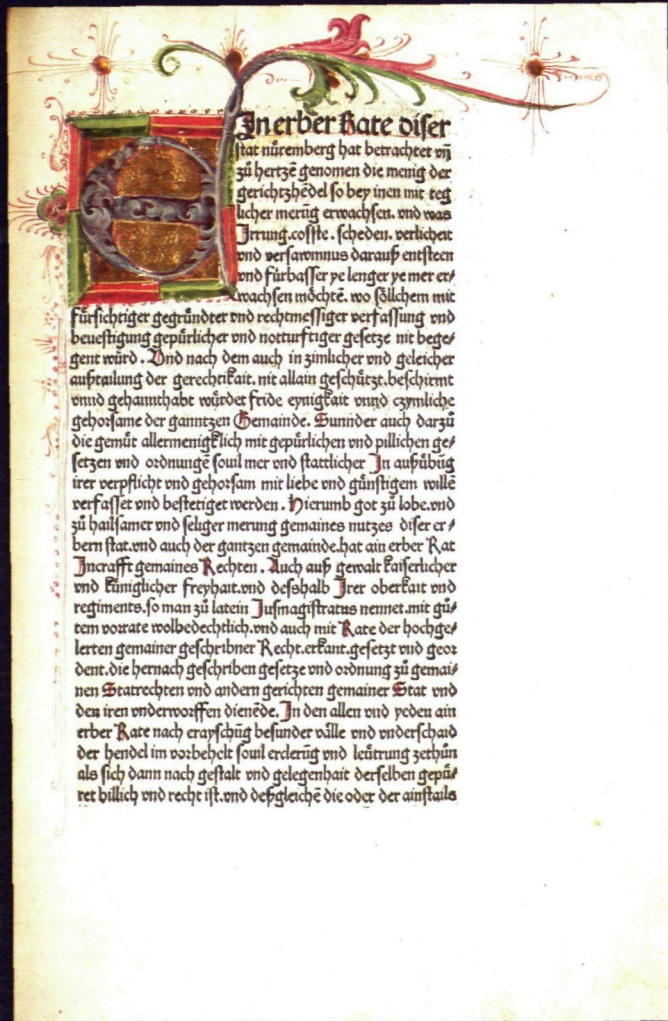 EIn erber Rate diser
stat nüremberg hat betrachtet vn̄
zů hertzē genomen die menig der
gerichtzhēdel so bey inen mit teg
licher merūg erwachsen. vnd was
Irrung.cosste.scheden.verlicheit
vnd versawmnus darauß entsteen
vnd fürbasser ye lenger ye mer er⸗
wachsen möchtē. wo söllchem mit
fürsichtiger gegründter vnd rechtmessiger verfassung vnd
beuestigung gepürlicher vnd notturftiger gesetze nit bege⸗
gent würd. Vnd nach dem auch in zimlicher vnd geleicher
außtailung der gerechtikait.nit allain geschützt.beschirmt
vnnd gehannthabt würdet fride eynigkait vnnd czymliche
gehorsame der ganntzen Gemainde. Sunnder auch darzů
die gemüt allermenigklich mit gepürlichen vnd pillichen ge⸗
setzen vnd ordnungē souil mer vnd stattlicher In außübūg
irer verpflicht vnd gehorsam mit liebe vnd günstigem willē
verfasset vnd bestetiget werden. Hierumb got zů lobe.vnd
zů hailsamer vnd seliger merung gemaines nutzes diser er⸗
bern stat.vnd auch der gantzen gemainde.hat ain erber Rat
Incrafft gemaines Rechten. Auch auß gewalt kaiserlicher
vnd küniglicher freyhait.vnd dessshalb Irer oberkait vnd
regiments.so man zů latein Jusmagistratus nennet.mit gů⸗
tem vorrate wolbedechtlich.vnd auch mit Rate der hochge⸗
lerten gemainer geschribner Recht.erkant.gesetzt vnd geor
dent.die hernach geschriben gesetze vnd ordnung zů gemai⸗
nen Statrechten vnd andern gerichten gemainer Stat vnd
den iren vnderworffen dienēde. In den allen vnd yeden ain
erber Rate nach erayschūg besunder välle vnd vnderschaid
der hendel im vorbehelt souil erclerūg vnd leütrung zethůn
als sich dann nach gestalt vnd gelegenhait derselben gepü⸗
ret billich vnd recht ist.vnd deßgleichē die oder der ainstails